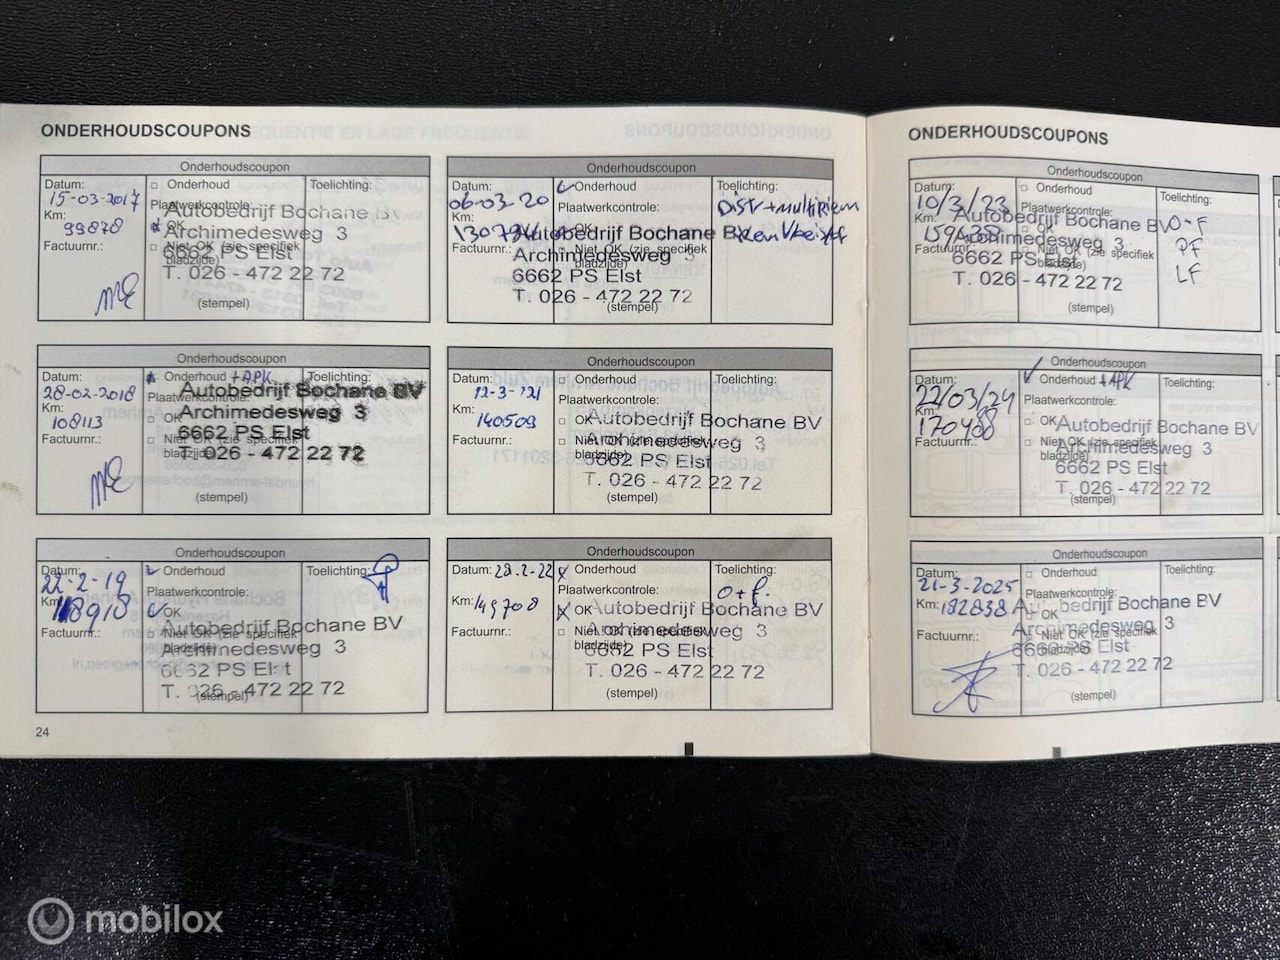 ONDERHOUDSCOUPONS
Onderhoudscoupon
Datum:
15-03-2017
Km:
99878
Factuurnr.:
Onderhoud
Plaatwerkcontrole:
OK
Niet OK (zie specifiek
bladzijde)
Toelichting:
Autobedrijf Bochane BV
Archimedesweg 3
6662 PS Elst
T. 026 - 472 22 72
(stempel)
Onderhoudscoupon
Datum:
28-02-2018
Km:
108113
Factuurnr.:
Onderhoud +APK
Plaatwerkcontrole:
OK
Niet OK (zie specifiek
bladzijde)
Toelichting:
Autobedrijf Bochane BV
Archimedesweg 3
6662 PS Elst
T. 026 - 472 22 72
(stempel)
Onderhoudscoupon
Datum:
22-2-19
Km:
118910
Factuurnr.:
Onderhoud
Plaatwerkcontrole:
OK
Niet OK (zie specifiek
bladzijde)
Toelichting:
Autobedrijf Bochane BV
Archimedesweg 3
6662 PS Elst
T. 026 - 472 22 72
(stempel)
24
Onderhoudscoupon
Datum:
06-03-20
Km:
Factuurnr.:
Onderhoud
Plaatwerkcontrole:
OK
Niet OK (zie specifiek
bladzijde)
Toelichting:
Dist+multiriem
Autobedrijf Bochane BV
Archimedesweg 3
6662 PS Elst
T. 026 - 472 22 72
(stempel)
Onderhoudscoupon
Datum:
12-3-'21
Km:
140509
Factuurnr.:
Onderhoud
Plaatwerkcontrole:
OK
Niet OK (zie specifiek
bladzijde)
Toelichting:
Autobedrijf Bochane BV
Archimedesweg 3
6662 PS Elst
T. 026 - 472 22 72
(stempel)
Onderhoudscoupon
Datum: 28.2-22
Km: 149708
Factuurnr.:
Onderhoud
Plaatwerkcontrole:
OK
Niet OK (zie specifiek
bladzijde)
Toelichting:
O+f.
Autobedrijf Bochane BV
Archimedesweg 3
6662 PS Elst
T. 026 - 472 22 72
(stempel)
ONDERHOUDSCOUPONS
Onderhoudscoupon
Datum:
10/3/23
Km:
Factuurnr.:
Onderhoud
Plaatwerkcontrole:
OK
Niet OK (zie specifiek
bladzijde)
Toelichting:
O-F
PF
LF
Autobedrijf Bochane BV
Archimedesweg 3
6662 PS Elst
T. 026 - 472 22 72
(stempel)
Onderhoudscoupon
Datum:
22/03/24
Km:
170488
Factuurnr.:
Onderhoud +APK
Plaatwerkcontrole:
OK
Niet OK (zie specifiek
bladzijde)
Toelichting:
Autobedrijf Bochane BV
Archimedesweg 3
6662 PS Elst
T. 026 - 472 22 72
(stempel)
Onderhoudscoupon
Datum:
21-3-2025
Km: 182838
Factuurnr.:
Onderhoud
Plaatwerkcontrole:
OK
Niet OK (zie specifiek
bladzijde)
Toelichting:
Autobedrijf Bochane BV
Archimedesweg 3
6662 PS Elst
T. 026 - 472 22 72
(stempel)
mobilox